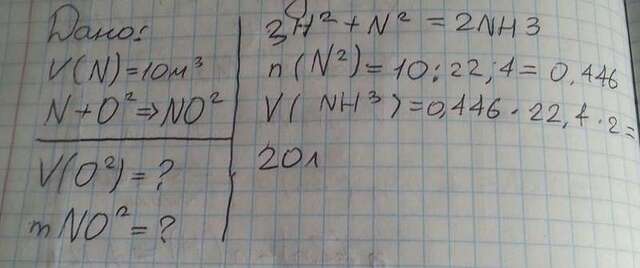 Дано:
V(N)=10м³
N+O²⇒NO²
V(O²)=?
mNO²=?
3H²+N²=2NH3
n(N²)=10:22,4=0,446
V(NH³)=0,446·22,4·2=
20л